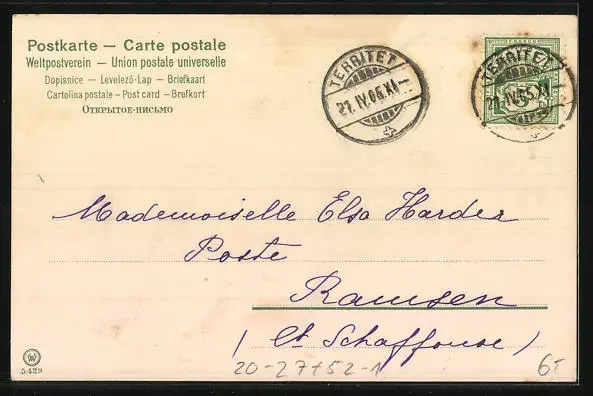 Postkarte — Carte postale
Weltpostverein — Union postale universelle
Dopisnice — Levelező-Lap — Briefkaart
Cartolina postale — Post card — Brefkort
Открытое-письмо
TERRITET
27.IV.05.XI
TERRITET
27.IV.05.XI
Mademoiselle Elsa Harder
Poste
Ramsen
(Ct Schaffouse)
20-27+52-1
5429